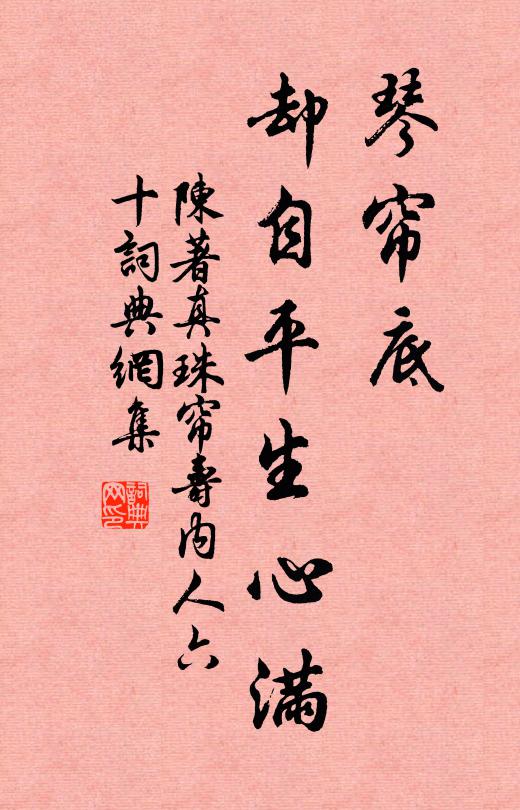 琴帘底
却自平生心满
陳著真珠帘壽内人六
十詞典網集
詞典网印